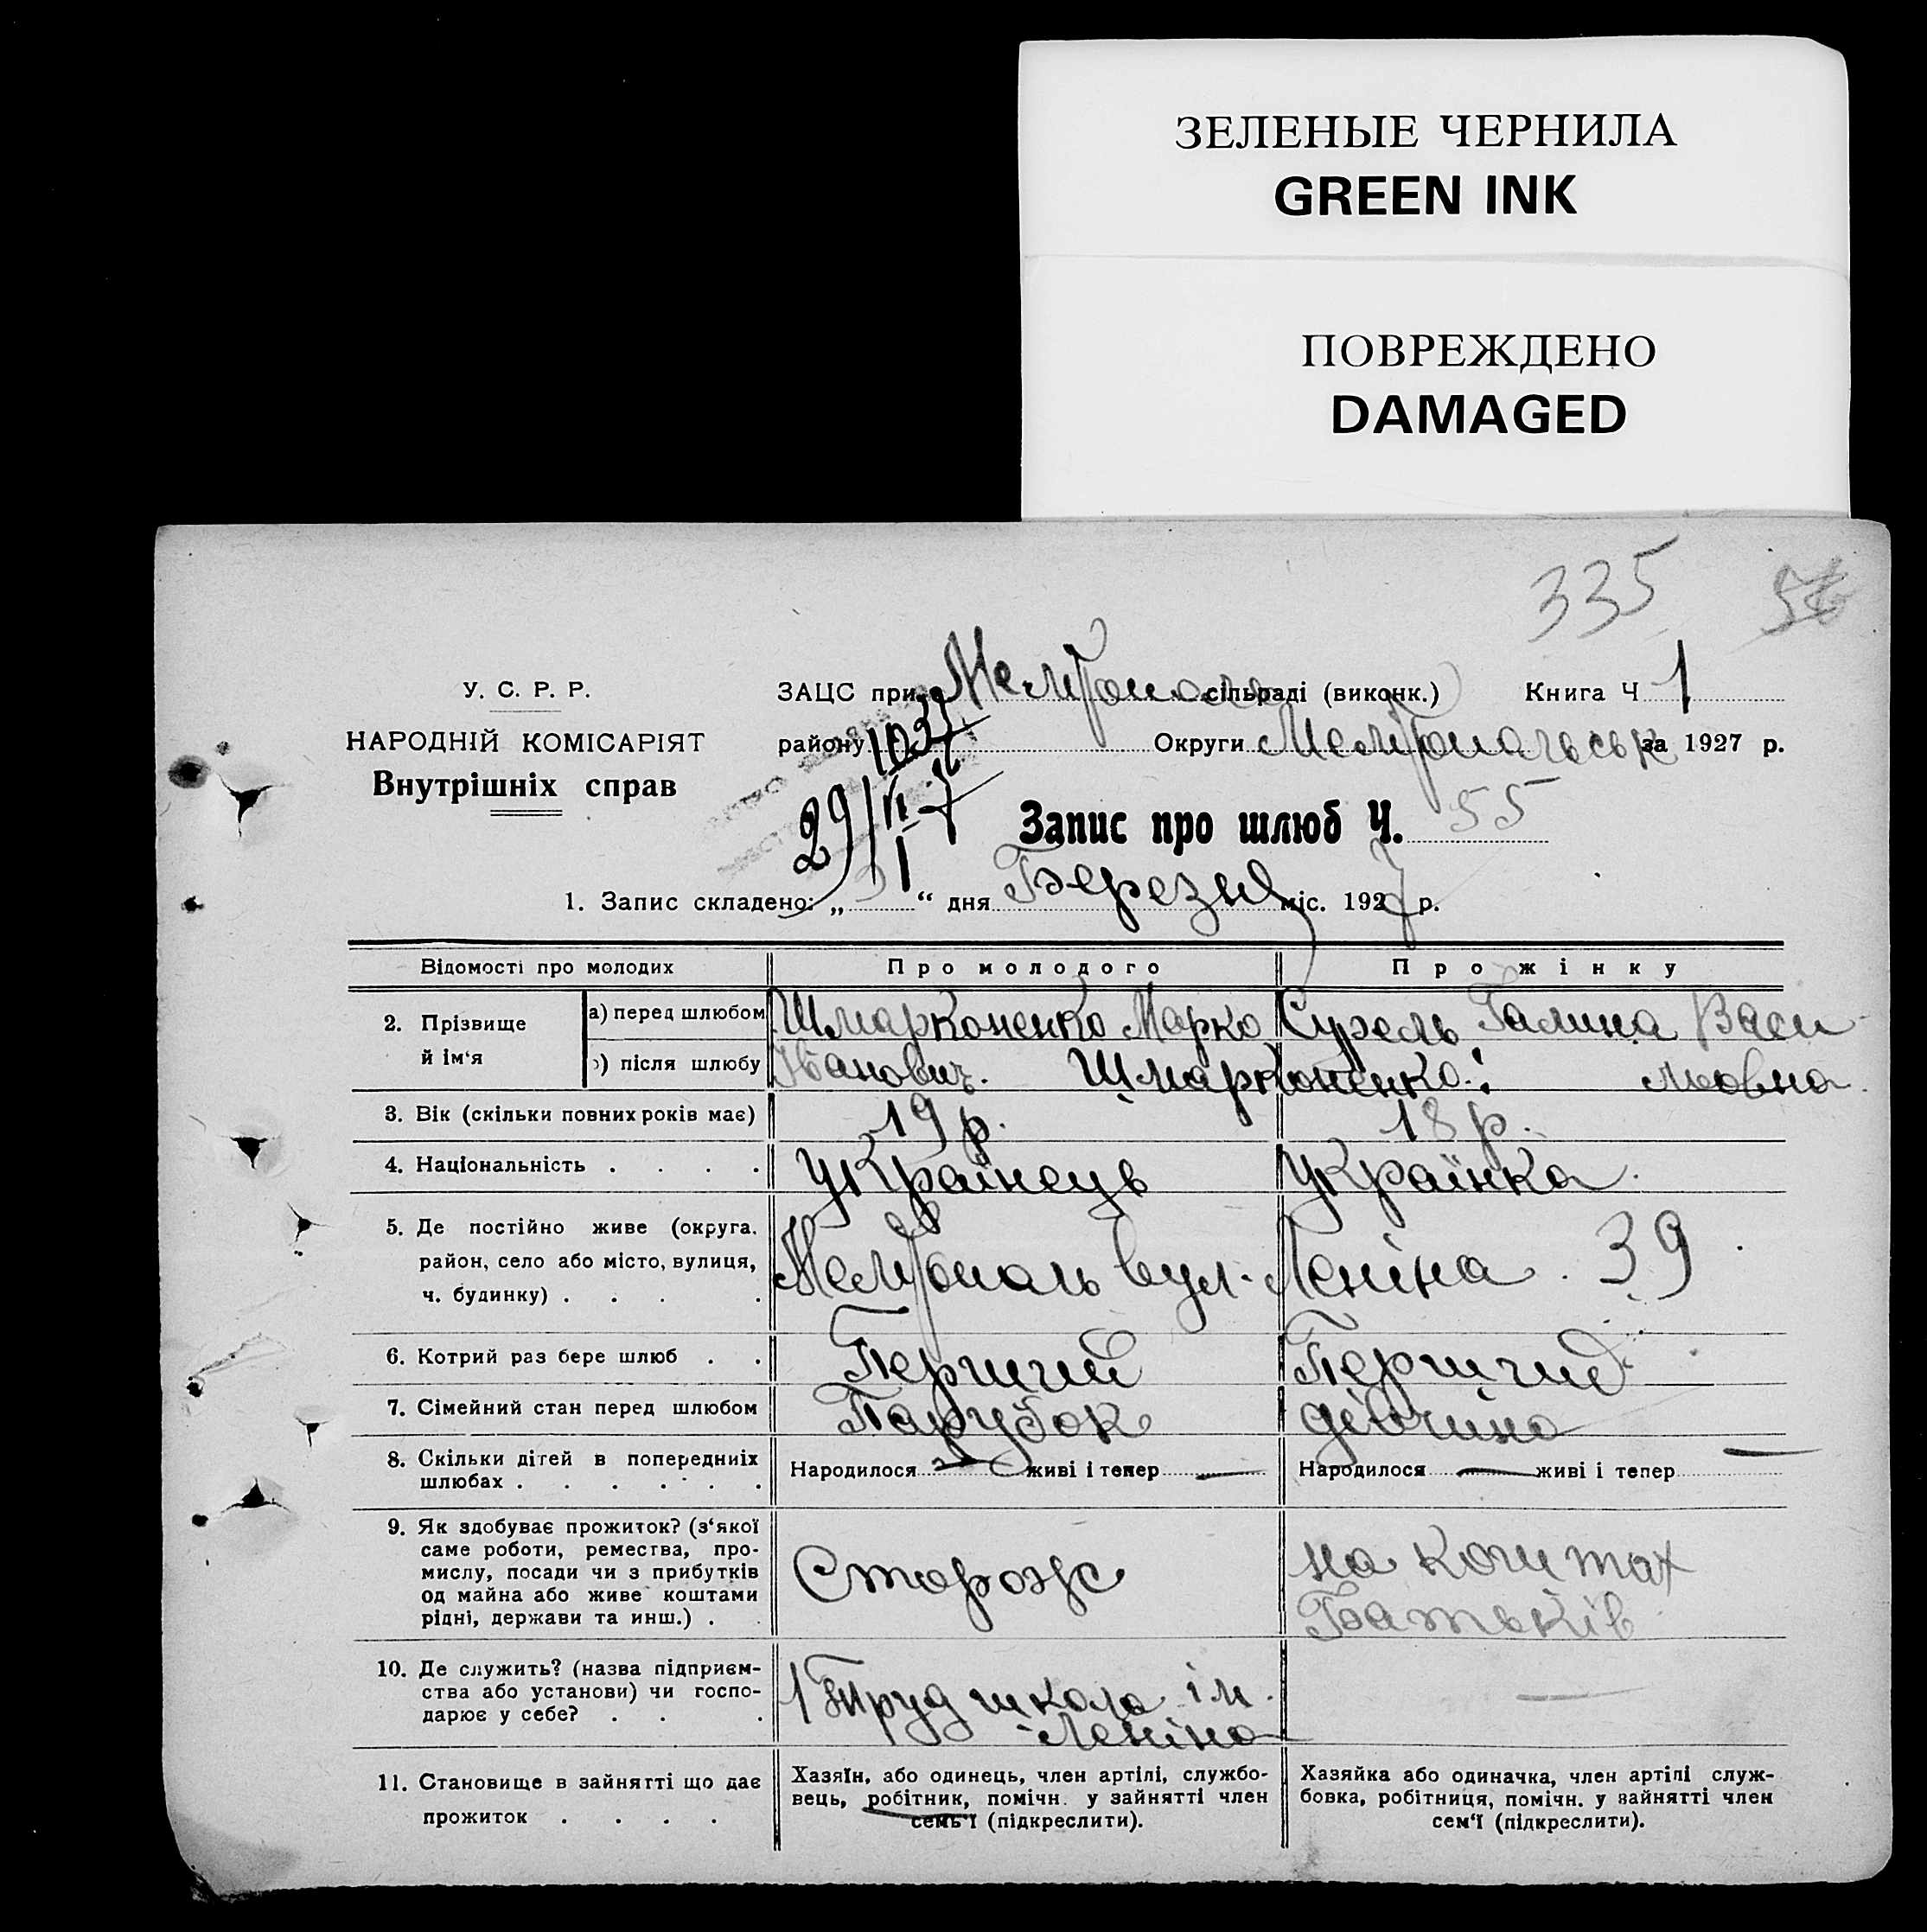 ЗЕЛЕНЫЕ ЧЕРНИЛА
GREEN INK
ПОВРЕЖДЕНО
DAMAGED
335
У. С. Р. Р.
НАРОДНІЙ КОМІСАРІЯТ
Внутрішніх справ
ЗАЦС при Мелітополь сільраді (виконк.) Книга Ч 1
району Округи Мелітопольськ за 1927 р.
29/II-27
Запис про шлюб Ч. 55
1. Запис складено: „ “ дня Березня міс. 1927 р.
Відомості про молодих Про молодого Про жінку
2. Прізвище й ім‘я
а) перед шлюбом Шмарконенко Марко Сурель Галина Васи-
) після шлюбу Іванович. Шмарконенко льовна
3. Вік (скільки повних років має) 19 р. 18 р.
4. Національність . . . . Українець Українка.
5. Де постійно живе (округа,
район, село або місто, вулиця,
ч. будинку) . . . .
Мелітополь вул. Леніна. 39
6. Котрий раз бере шлюб . . Перший Перший
7. Сімейний стан перед шлюбом Парубок дівчина
8. Скільки дітей в попередниіх
шлюбах . . . . . .
Народилося — живі і тепер — Народилося — живі і тепер —
9. Як здобуває прожиток? (з‘якої
саме роботи, ремества, про-
мислу, посади чи з прибутків
од майна або живе коштами
рідні, держави та инш.) . .
Сторож
на коштах
Батьків
10. Де служить? (назва підприєм-
ства або установи) чи госпо-
дарює у себе? . . .
1 Труд школа ім.
Леніна
—
11. Становище в зайнятті що дає
прожиток . . . .
Хазяїн, або одинець, член артілі, службо-
вець, робітник, помічн. у зайнятті член
семь‘ї (підкреслити).
Хазяйка або одиначка, член артілі служ-
бовка, робітниця, помічн. у зайнятті член
сем‘ї (підкреслити).